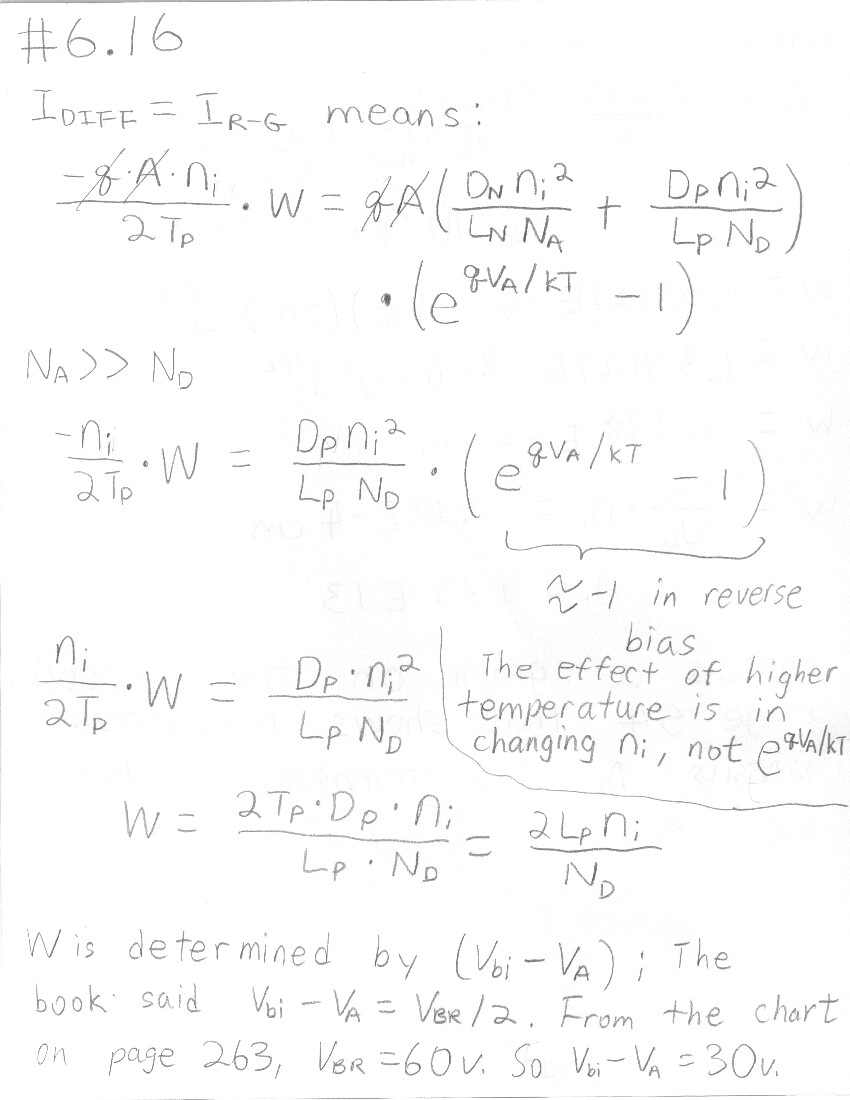 #6.16
I_DIFF = I_R-G means:
-q·A·n_i / 2T_P · W = qA(D_N n_i² / L_N N_A + D_P n_i² / L_P N_D)
·(e^{qV_A/kT} - 1)
N_A >> N_D
-n_i / 2T_P · W = D_P n_i² / L_P N_D · (e^{qV_A/kT} - 1)
≈ -1 in reverse
bias
n_i / 2T_P · W = D_P · n_i² / L_P N_D
The effect of higher
temperature is in
changing n_i, not e^{qV_A/kT}
W = 2T_P · D_P · n_i / L_P · N_D = 2L_P n_i / N_D
W is determined by (V_bi - V_A); The
book said V_bi - V_A = V_BR/2. From the chart
on page 263, V_BR = 60v. So V_bi - V_A = 30v.